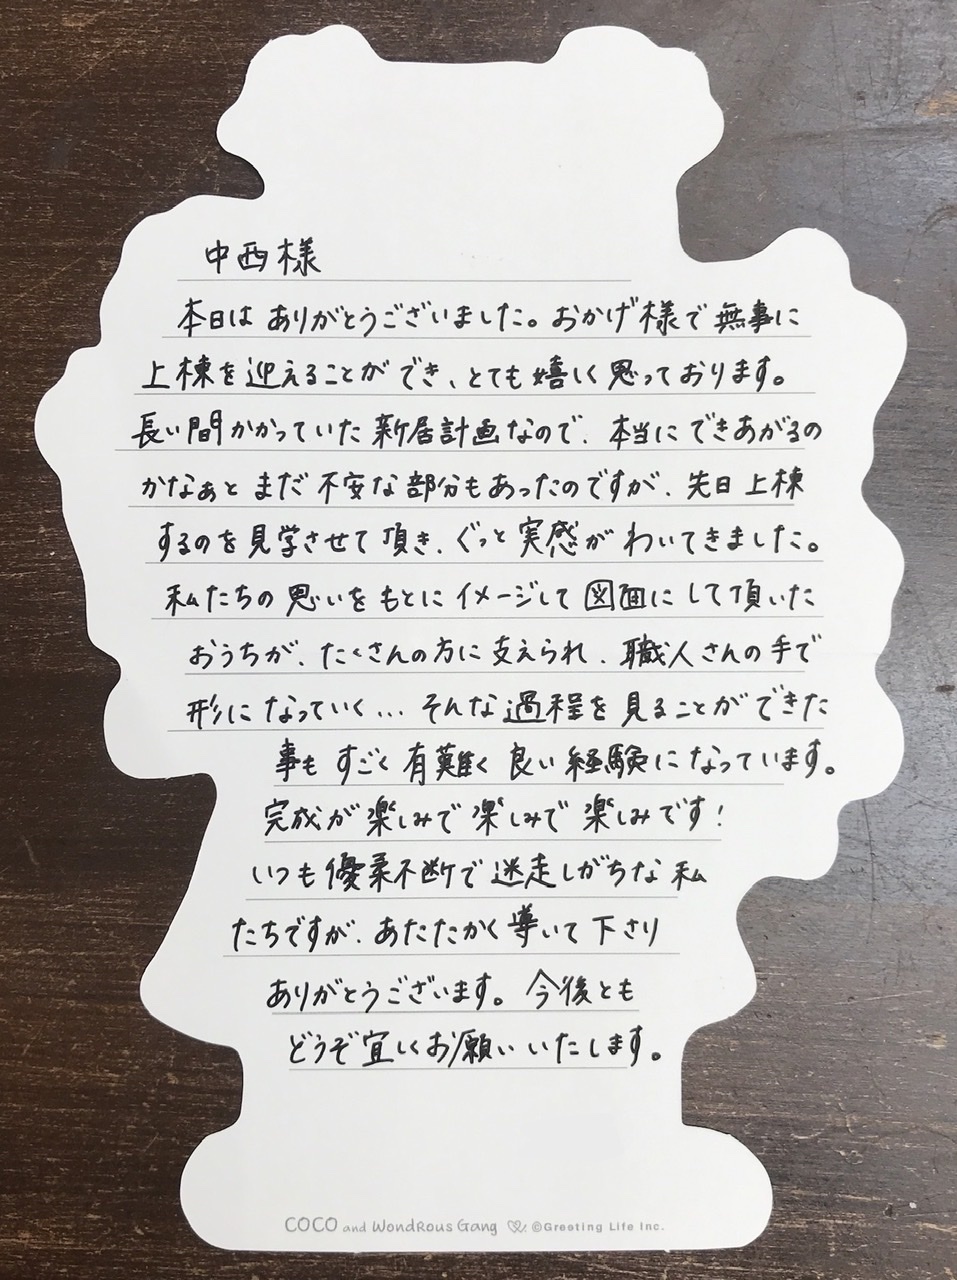 中西様
本日は ありがとうございました。おかげ様で 無事に
上棟を 迎えることが でき、とても 嬉しく 思っております。
長い間 かかっていた 新居計画なので、本当に できあがるの
かなぁと まだ 不安な 部分も あったのですが、先日 上棟
するのを 見学させて 頂き、ぐっと 実感が わいてきました。
私たちの 思いを もとに イメージして 図面に して頂いた
おうちが、たくさんの方に 支えられ、職人さんの手で
形に なっていく... そんな 過程を 見ることが できた
事も すごく 有難く 良い 経験に なっています。
完成が 楽しみで 楽しみで 楽しみです!
いつも 優柔不断で 迷走しがちな 私
たちですが、あたたかく 導いて 下さり
ありがとうございます。今後とも
どうぞ 宜しく お願い いたします。
COCO and Wondrous Gang ©Greeting Life Inc.